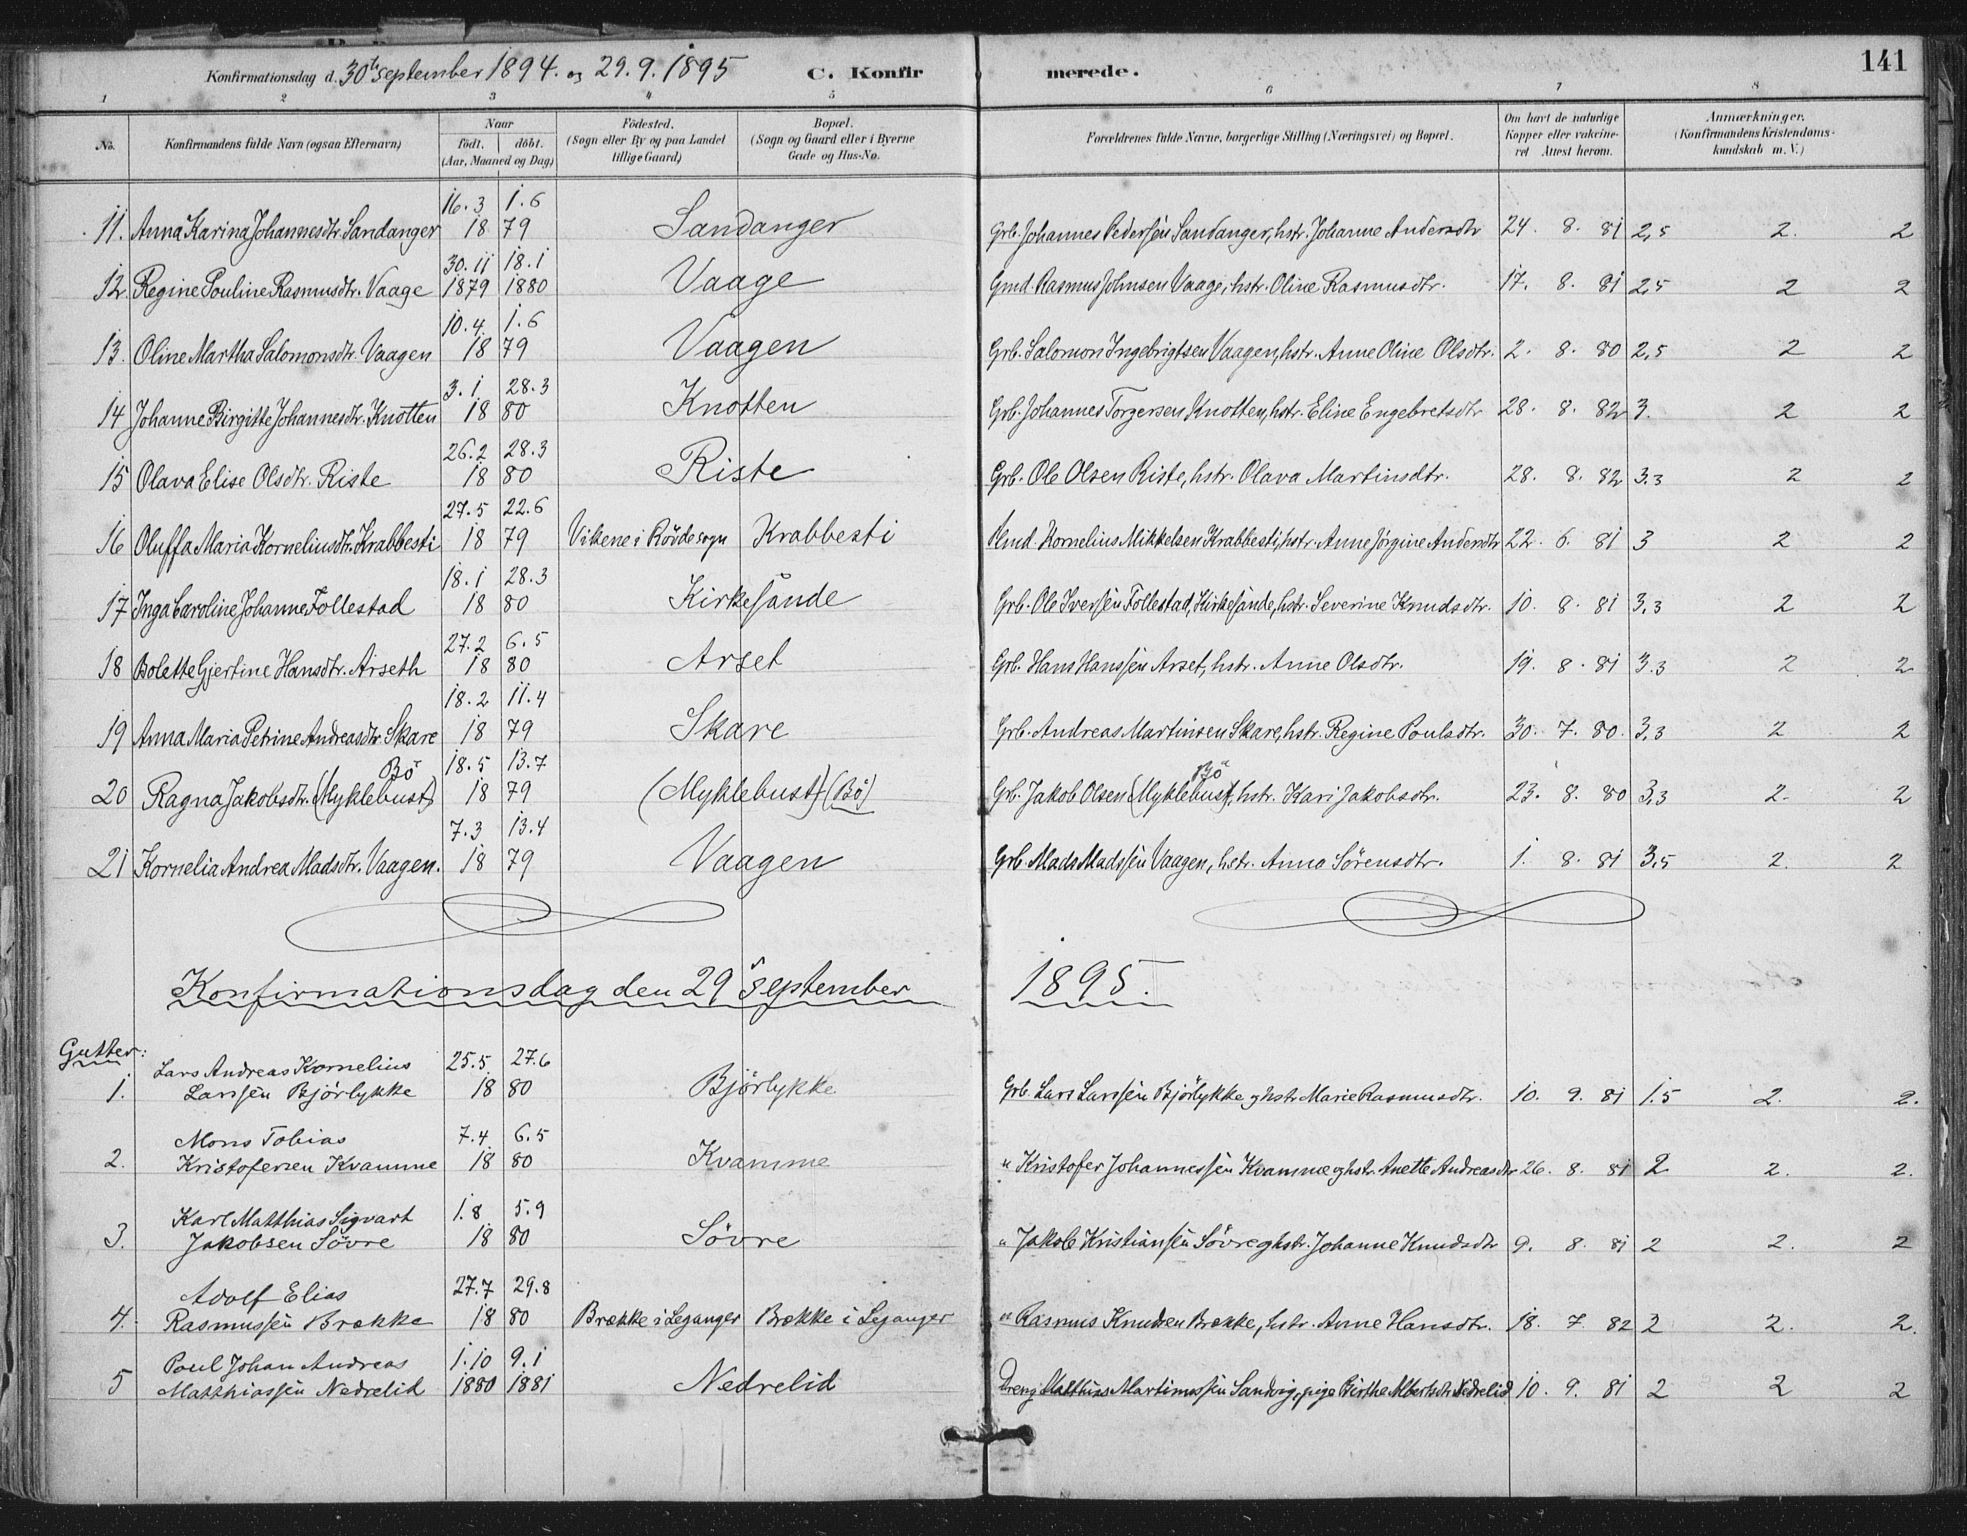 Konfirmationsdag d. 30te september 1894. og 29.9.1895 C. Konfirmerede. 141
1 2 3 4 5 6 7 8
No. Konfirmandens fulde Navn (ogsaa Efternavn) Naar födt. döbt. (Aar, Maaned og Dag) Födested. (Sogn eller By og paa Landet tillige Gaard) Bopæl. (Sogn og Gaard eller i Byerne Gade og Hus-No. Forældrenes fulde Navne, borgerlige Stilling (Næringsvei) og Bopæl. Om havt de naturlige Kopper eller vakcineret Attest herom. Anmærkninger. (Konfirmandens Kristendomskundskab m. V.)
16.3 1.6
11. Anna Karina Johannesdtr. Sandanger 18 79 Sandanger Grb. Johannes Pedersen Sandanger, hstr. Johanne Andersdtr 24. 8. 81 2,5 2. 2
30.11 18.1
12. Regine Pouline Rasmusdtr. Vaage 1879 1880 Vaage Gmd. Rasmus Johnsen Vaage, hstr. Oline Rasmusdtr. 17. 8. 81 2,5 2 2
10.4 1.6
13. Oline Martha Salomonsdtr. Vaagen 18 79 Vaagen Grb. Salomon Ingebrigtsen Vaagen, hstr. Anne Oline Olsdtr. 2. 8. 80 2,5 2 2
3.1 28.3
14 Johanne Birgitte Johannesdtr. Knotten 18 80 Knotten Grb. Johannes Torgersen Knotten, hstr. Eline Engebretsdtr 28. 8. 82 3. 2 2
26.2 28.3
15 Olava Elise Olsdtr. Riste 18 80 Riste Grb. Ole Olsen Riste, hstr. Olava Martinsdtr. 28. 8. 82 3.3 2 2
27.5 22.6
16 Oluffa Maria Korneliusdtr. Krabbesti 18 79 Vikene i Rövde sogn Krabbesti Kornelius Mikkelsen Krabbesti, hstr. Anne Jörgine Andersdtr 22. 6. 81 3 2 2
18.1 28.3
17 Inga Caroline Johanne Follestad 18 80 Kirkesånde Grb. Ole Iversen Follestad, Kirkesånde, hstr. Severine Knudsdtr. 10. 8. 81 3,3 2 2
27.2 6.5
18 Bolette Gjertine Hansdtr. Arseth 18 80 Arset Grb. Hans Hanssen Arset, hstr. Anne Olsdtr. 19. 8. 81 3.3 2 2
18.2 11.4
19 Anna Maria Petrine Andreasdtr. Skare 18 79 Skare Grb. Andreas Martinsen Skare, hstr. Regine Poulsdtr. 30. 7. 80. 3,3 2 2
Bö 18.5 13.7 Bö
20 Ragna Jakobsdtr. (Myklebust) 18 79 (Myklebust) (Bö) Grb. Jakob Olsen (Myklebust), hstr. Kari Jakobsdtr. 23. 8. 80 3,3 2. 2
7.3 13.4
21 Kornelia Andrea Madsdtr. Vaagen. 18 79 Vaagen Grb. Mads Madssen Vaagen, hstr. Anna Sörensdtr. 1. 8. 81 3,5 2. 2
Konfirmationsdag den 29 september 1895.
Gutter:
Lars Andreas Kornelius 25.5 27.6
1. Larssen Bjørlykke 18 80 Bjørlykke Grb. Lars Larssen Bjørlykke og hstr Marie Rasmusdtr. 10. 9. 81 1.5 2. 2.
Mons Tobias 7.4 6.5
2. Kristofersen Kvamme 18 80 Kvamme " Kristofer Johannessen Kvamme og hstr. Anette Andreasdtr 26. 8. 81 2 2. 2.
Karl Matthias Sigvart 1.8 5.9
3. Jakobsen Sövre 18 80 Sövre " Jakob Kristiansen Sövre og hstr. Johanne Knudsdtr 9. 8. 81 2 2. 2
Adolf Elias 27.7 29.8
4. Rasmussen Brække 18 80 Brække i Leganger Brække i Leganger " Rasmus Knudsen Brække, hstr. Anne Hansdtr. 18. 7. 82 2 2. 2.
Poul Johan Andreas 1.10 9.1
5 Matthiassen Nedrelid 1880 1881 Nedrelid Dreng Matthias Martinussen Sandvig, pige Birthe Albertsdtr Nedrelid 10. 9. 81 2 2 2